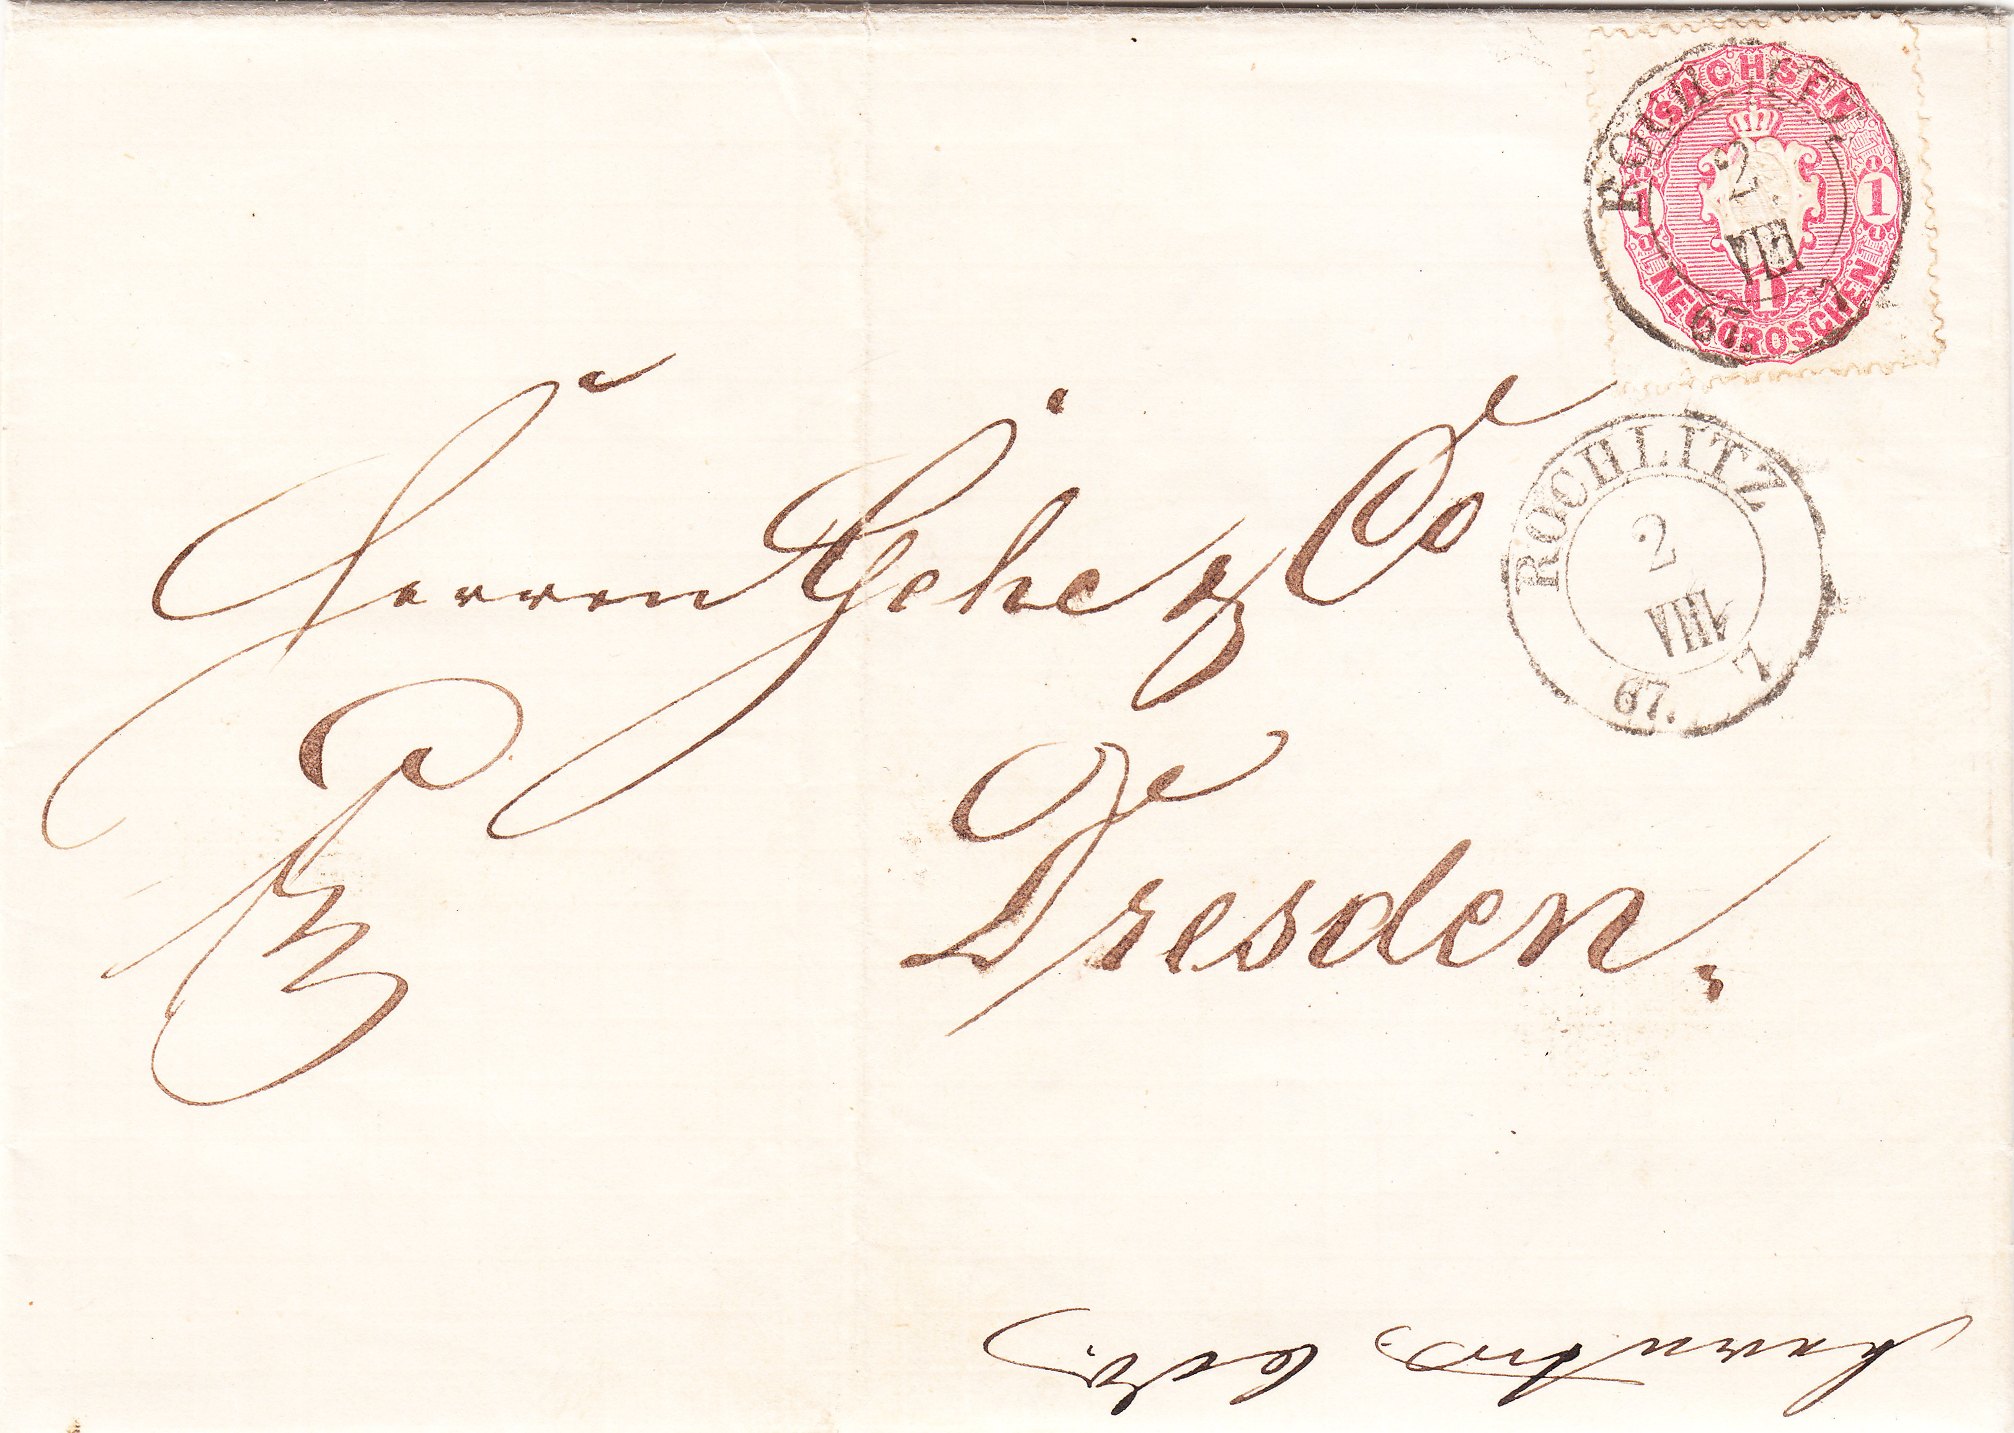 SACHSEN
1 1
1
NEUGROSCHEN
ROCHLITZ
2
VIII
67. 7
ROCHLITZ
2
VIII
67. 7
Herren Gehe & Co
Dresden.